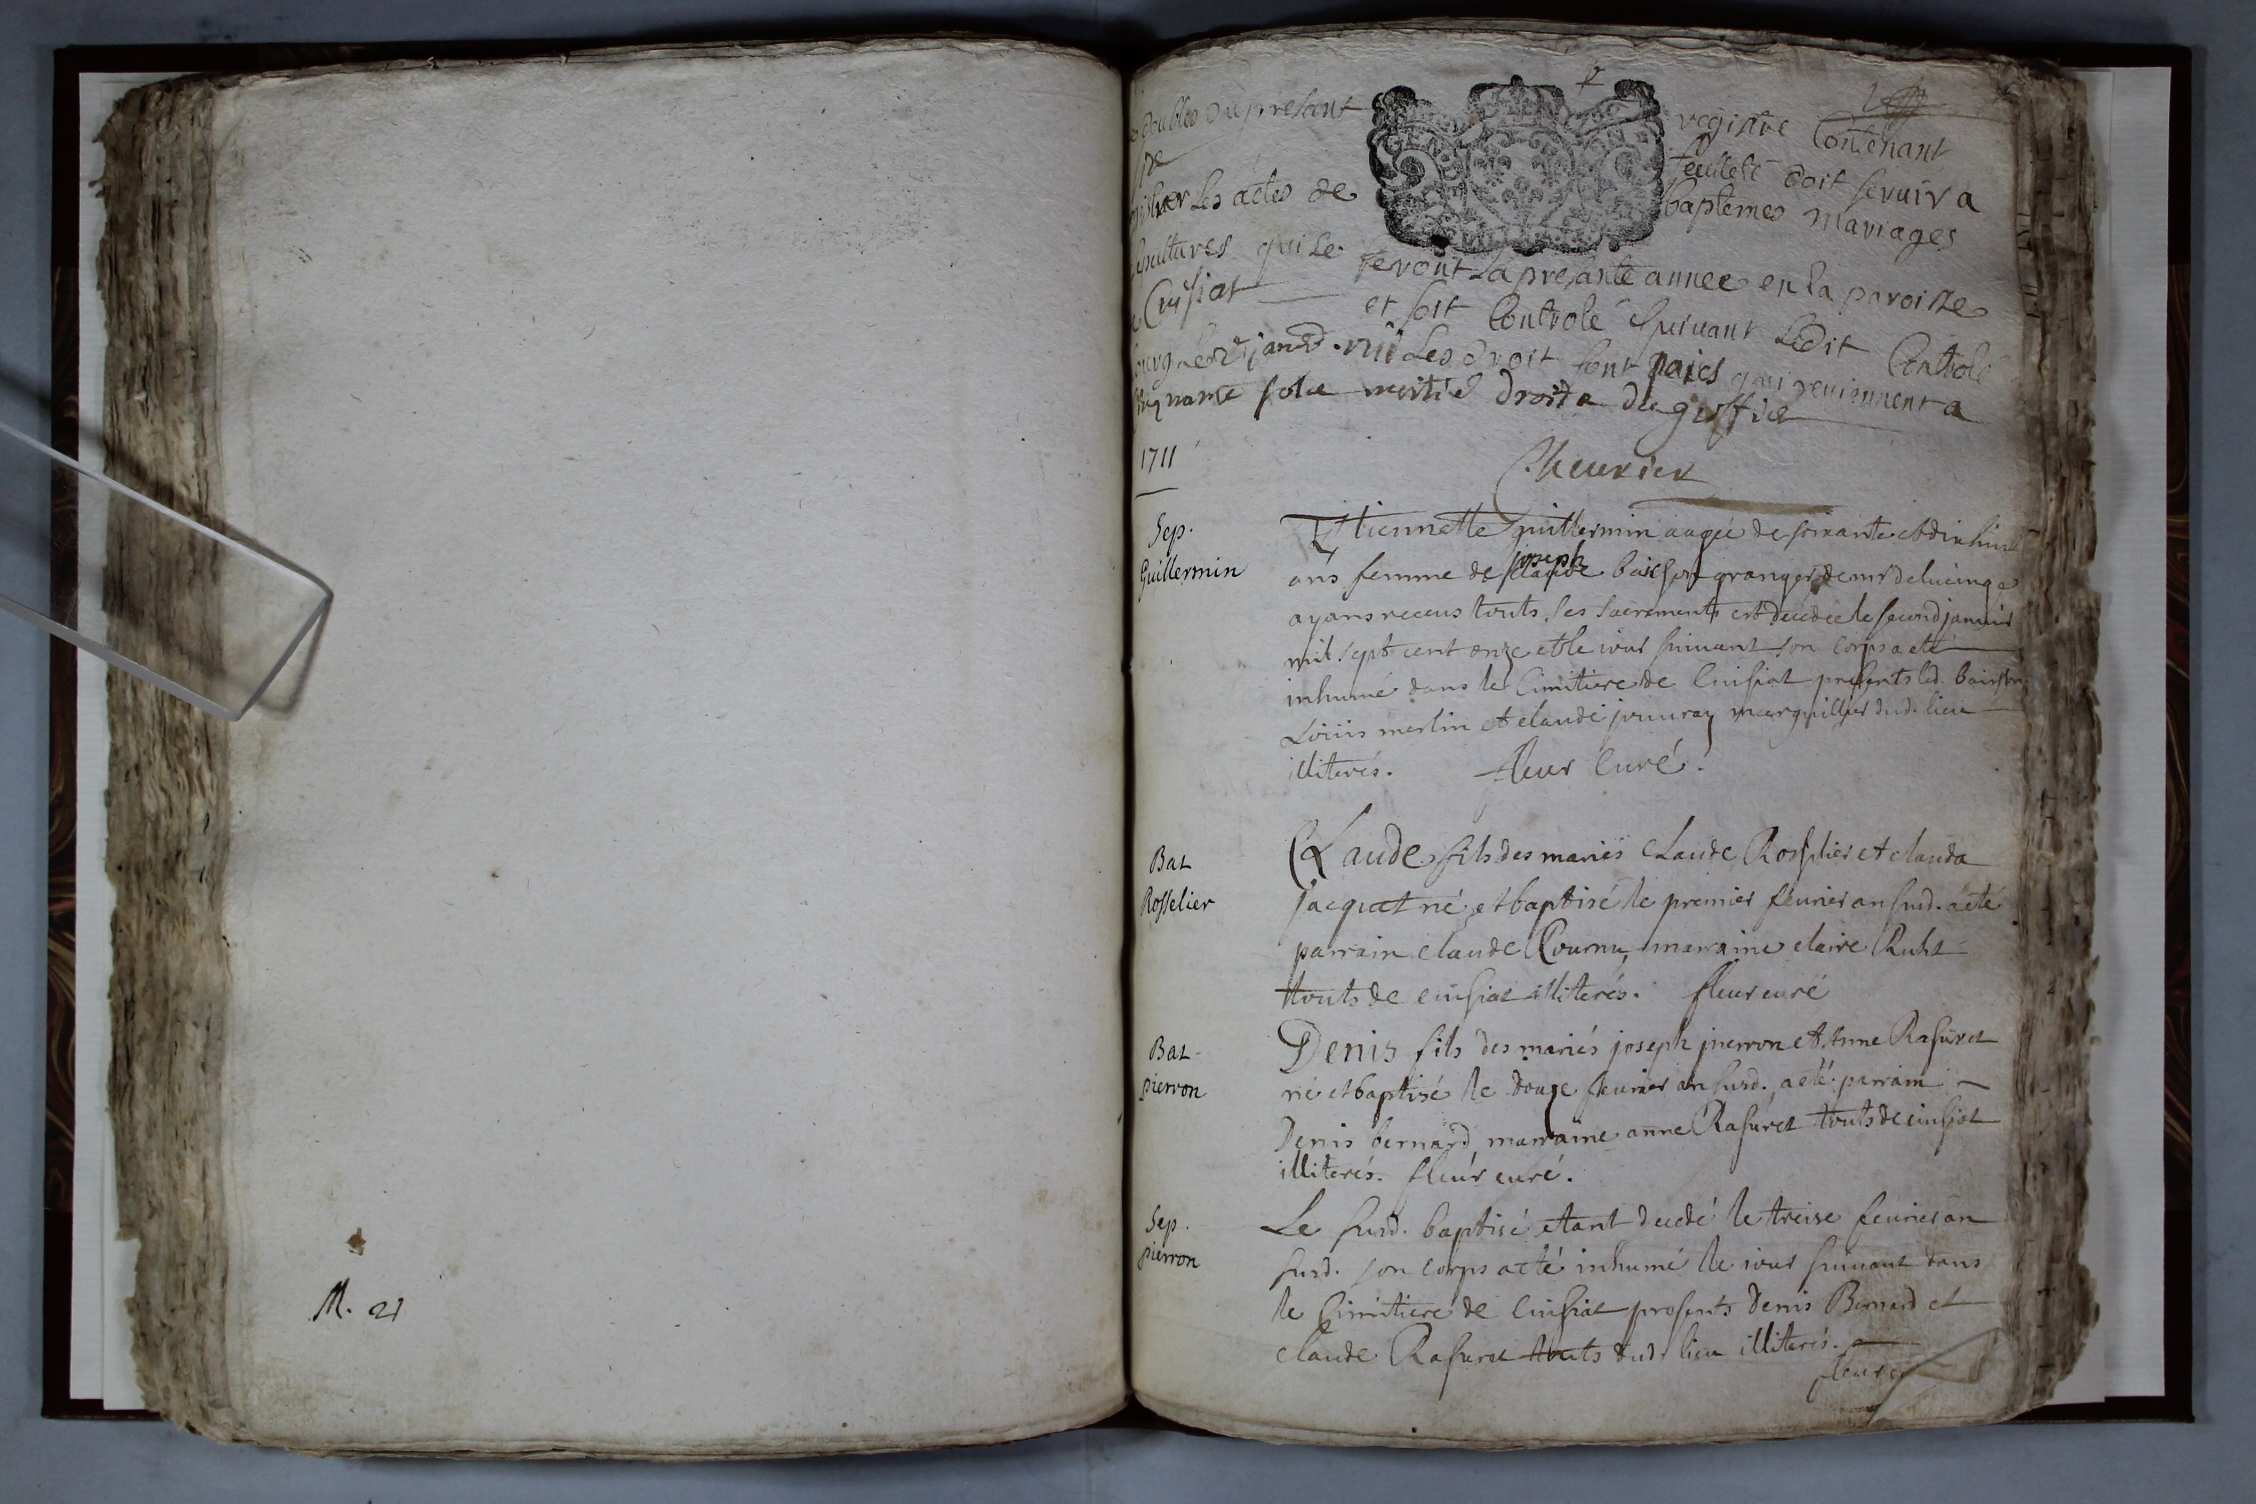 M. 21
doubles du presant registre Contenant
feuillets doit servir a
les actes de baptemes mariages
sepultures qui se feront la presante annee en la paroisse
Cuisiat et soit Controlé suivant Ledit Controlé
Les droit sont paies qui reviennent a
sols moitié droits du greffier
1711
Cheurier
Sep.
Guillermin
Etiennette Guillermin aagée de soixante et dix huit
ans femme de claude joseph granger de mr de lucinge
ayans receus touts ses sacrements est decedée le second janvier
mil sept cent onze et le jour suivant son corps a eté
inhumé dans le Cimitiere de Cuisiat presents led.
Loüis merlin et claude marguillier dud. lieu
illiterés. fleur Curé.
Bat
Rosselier
CLaude fils des mariés cLaude Rosselier et clauda
Jacquet né et baptisé le premier feurier an susd. a eté
parrain claude Cournu, marraine claire Ruht
touts de cuisiat illiterés. fleur curé
Bat
pierron
Denis fils des mariés joseph pierron et Anne Rasuret
né et baptisé le douze feurier an susd. a eté parrain
Denis bernard marraine anne Rasuret touts de cuisiat
illiterés. fleur curé.
Sep.
pierron
Le susd. baptisé etant decedé le treise feurier an
susd. son corps a eté inhumé le jour suivant dans
le Cimitiere de Cuisiat presents Denis Bernard et
claude Rasuret touts dud. lieu illiterés.
fleur